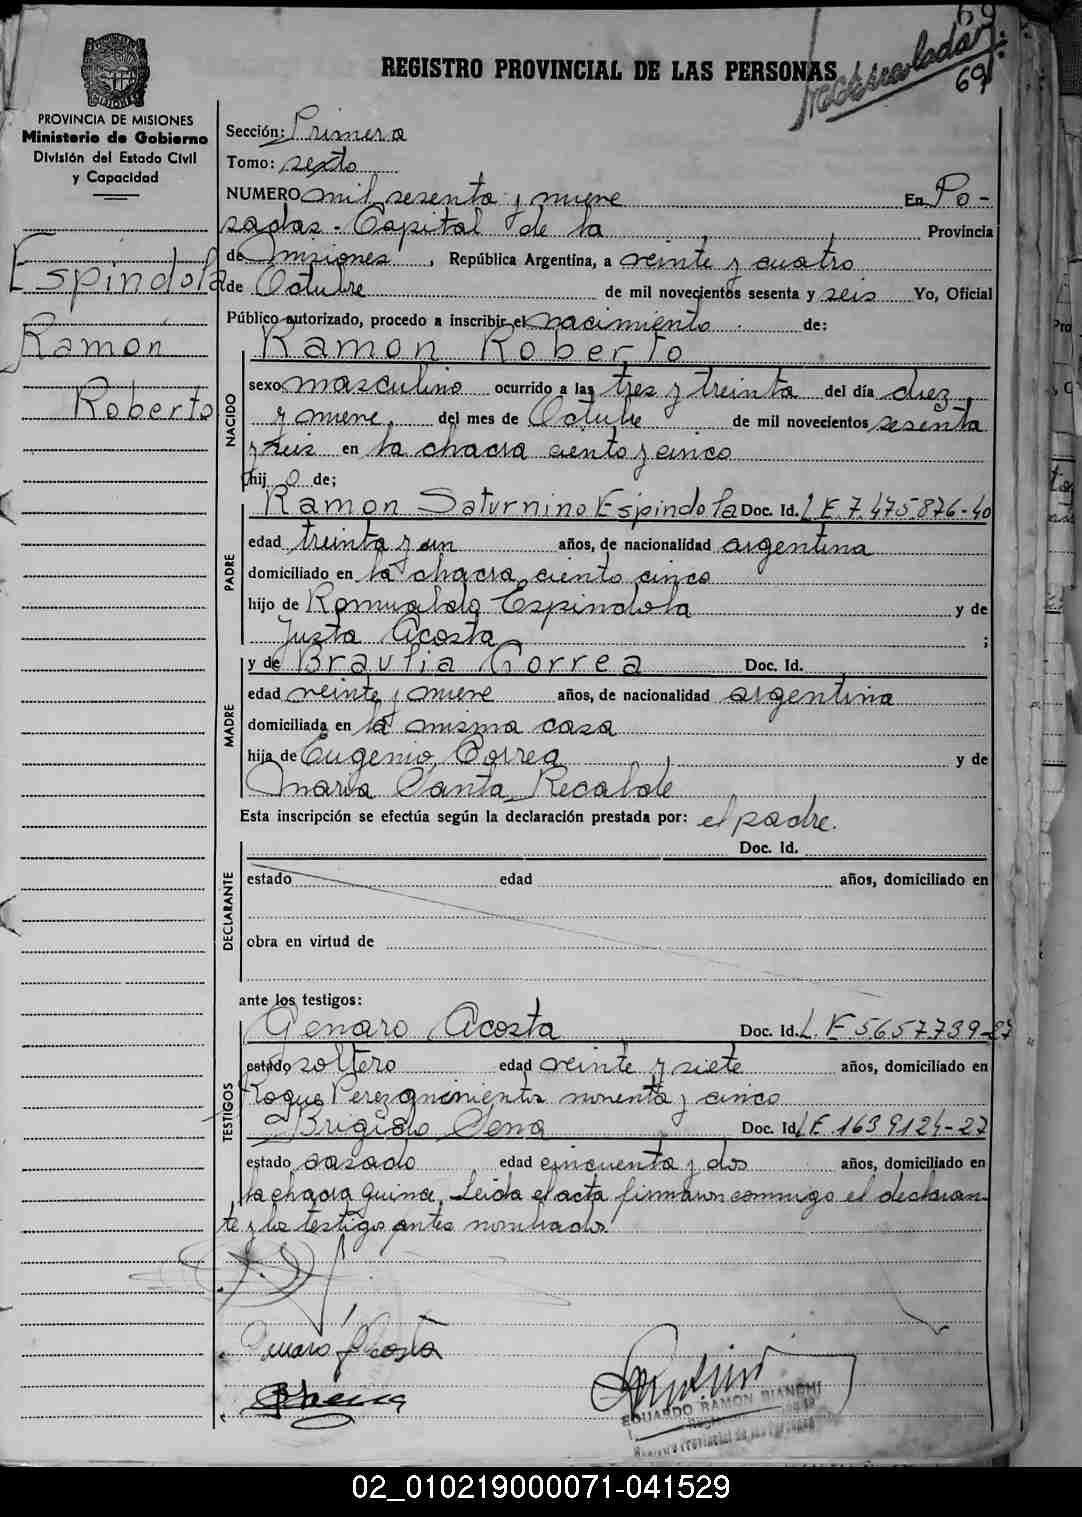 69
REGISTRO PROVINCIAL DE LAS PERSONAS
69
PROVINCIA DE MISIONES
Ministerio de Gobierno
División del Estado Civil
y Capacidad
Espindola
Ramón
Roberto
Sección: Primera
Tomo: sexto
NUMERO mil sesenta y nueve En Po-
sadas - Capital de la Provincia
de Misiones, República Argentina, a veinte y cuatro
de Octubre de mil novecientos sesenta y seis Yo, Oficial
Público autorizado, procedo a inscribir el nacimiento de:
NACIDO
Ramon Roberto
sexo masculino ocurrido a las tres y treinta del día diez
y nueve del mes de Octubre de mil novecientos sesenta
y seis en la chacra ciento y cinco
hijo de;
PADRE
Ramon Saturnino Espindola Doc. Id. L.E. 7.475876-40
edad treinta y un años, de nacionalidad argentina
domiciliado en la chacra ciento cinco
hijo de Romualdo Espindola y de
Justa Acosta ;
MADRE
y de Braulia Correa Doc. Id.
edad veinte y nueve años, de nacionalidad argentina
domiciliada en la misma casa
hija de Eugenio Correa y de
Maria Santa Recalde
Esta inscripción se efectúa según la declaración prestada por: el padre.
DECLARANTE
Doc. Id.
estado edad años, domiciliado en
obra en virtud de
ante los testigos:
TESTIGOS
Genaro Acosta Doc. Id. L.E 5657739-27
estado soltero edad veinte y siete años, domiciliado en
Roque Perez quinientos noventa y cinco
Brigido Sena Doc. Id. L.E. 1639124-27
estado casado edad cincuenta y dos años, domiciliado en
la chacra quince. Leida el acta firmaron conmigo el declaran-
te y los testigos antes nombrados
Genaro Acosta
BSena
EDUARDO RAMON BIANCHI
Registro Provincial de las Personas
02_010219000071-041529